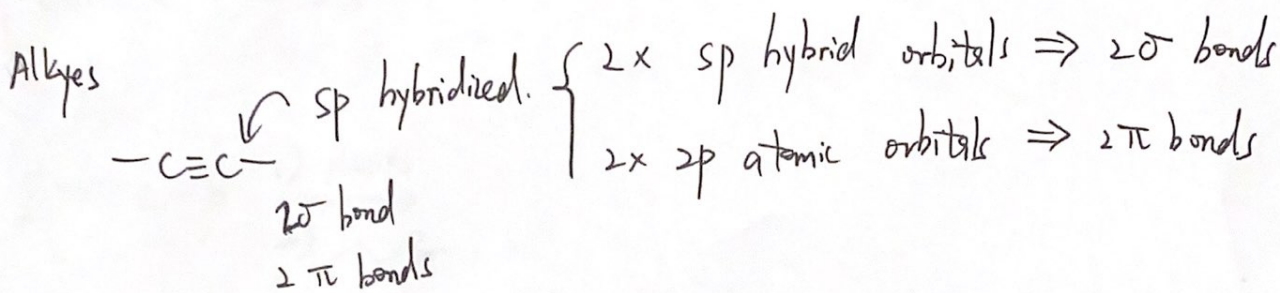 Alkyes
sp hybridized. { 2x sp hybrid orbitals ⇒ 2σ bonds
2x 2p atomic orbitals ⇒ 2π bonds
-C≡C-
2σ bond
2 π bonds